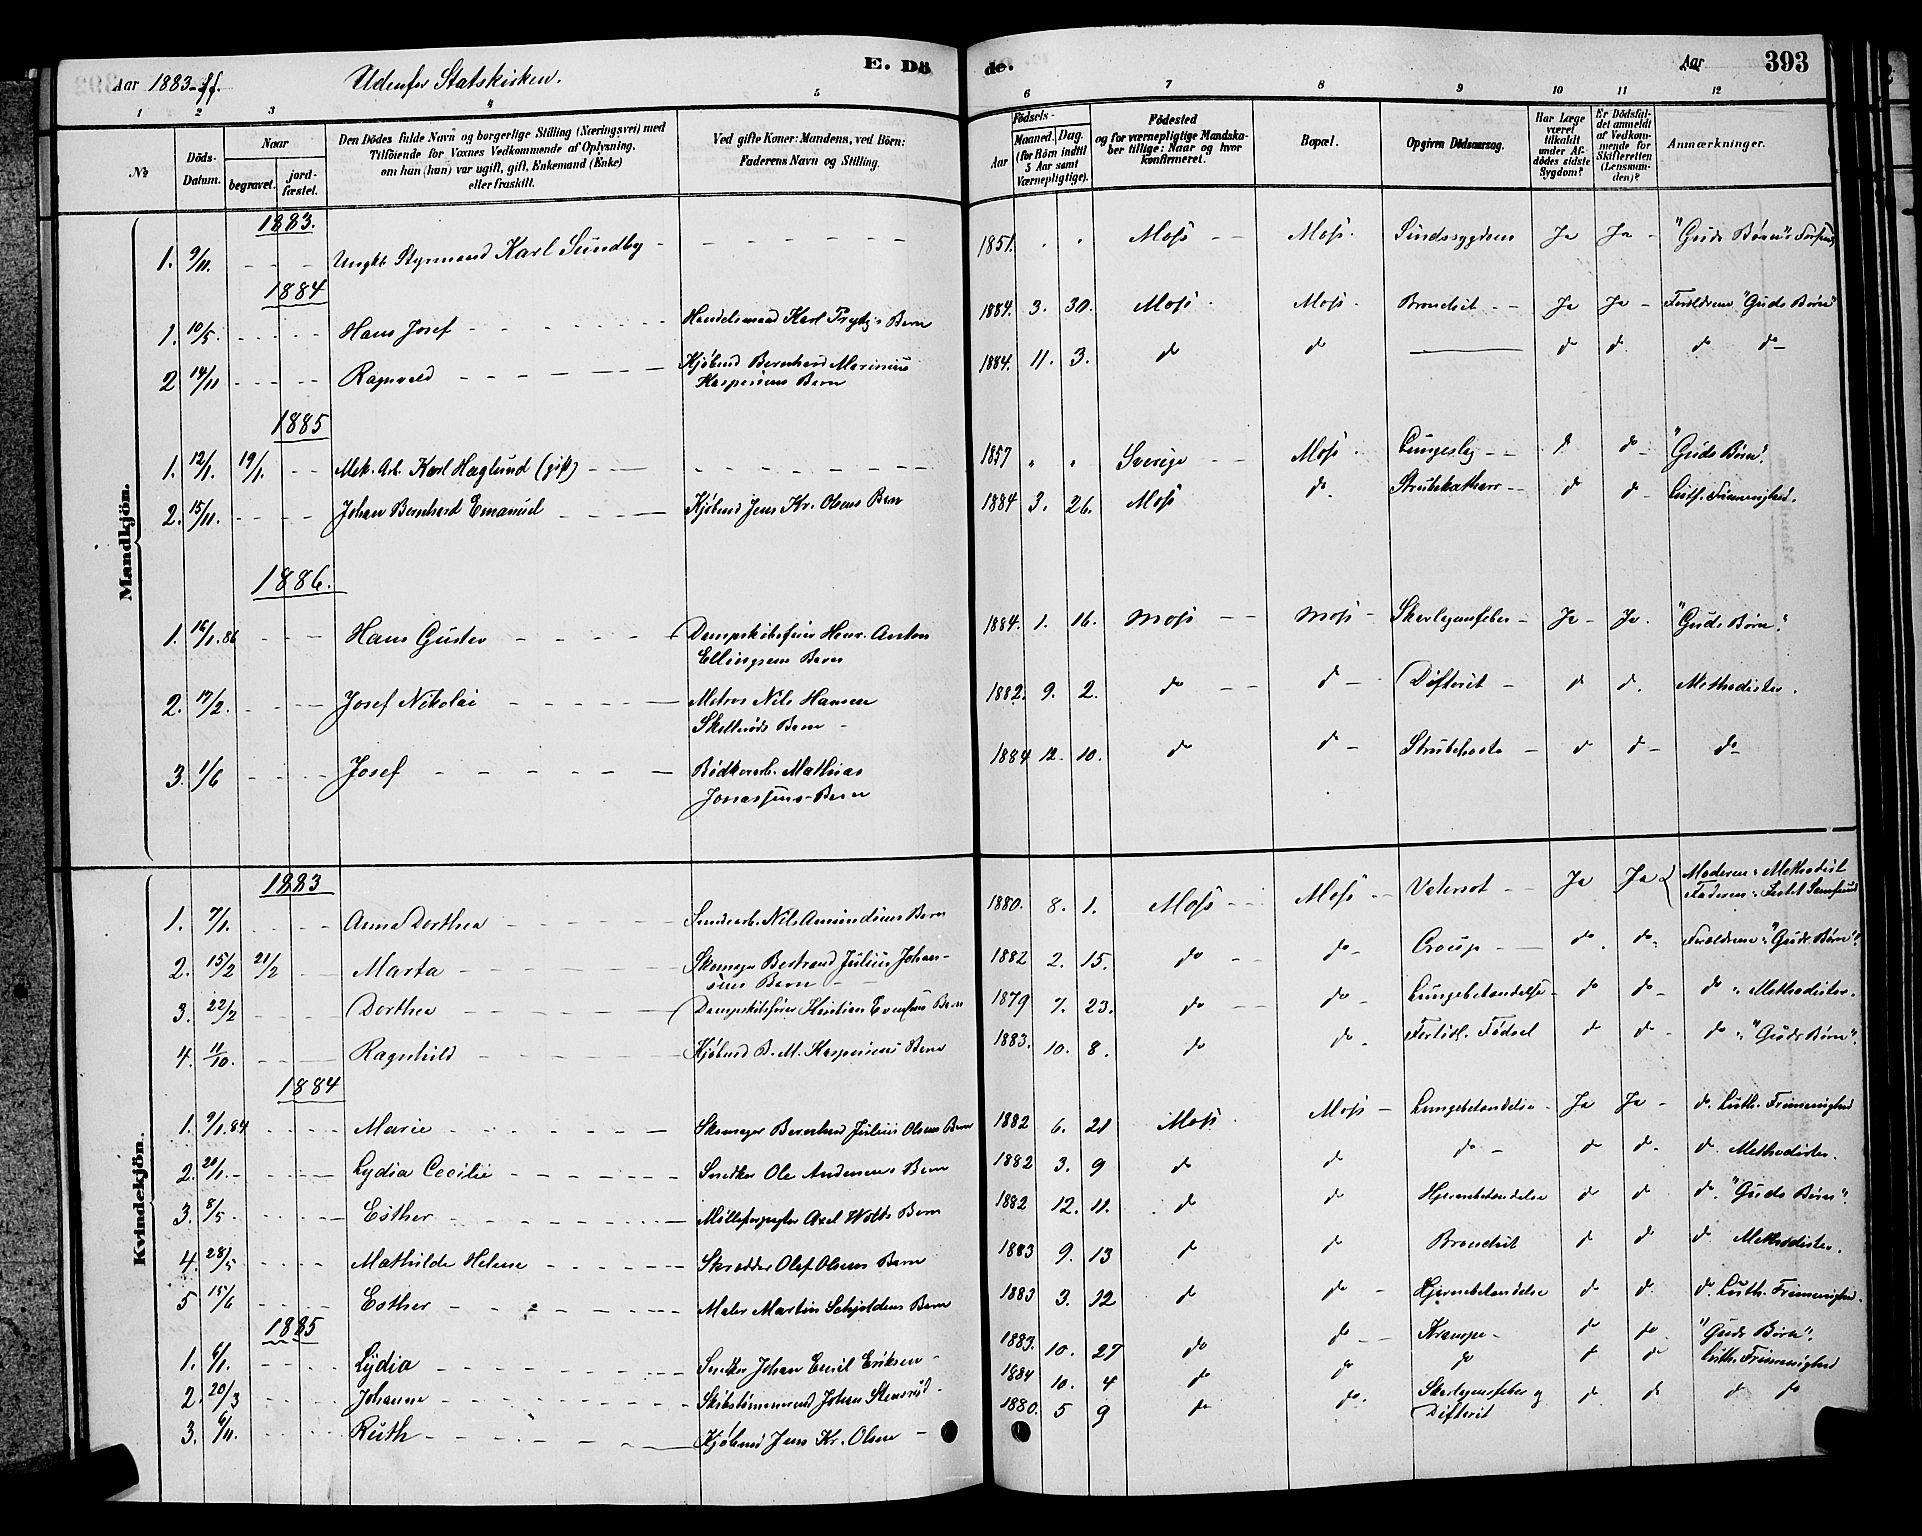 Aar 1883 ff. Udenfor Statskirken. E. Döde. Aar 393
1 2 3 4 5 6 7 8 9 10 11 12
No
Döds-Datum.
Naar
begravet.
jordfæstet.
Den Dödes fulde Navn og borgerlige Stilling (Næringsvei) med
Tilföiende for Voxnes Vedkommende af Oplysning,
om han (hun) var ugift, gift, Enkemand (Enke)
eller fraskilt.
Ved gifte Koner: Mandens, ved Börn:
Faderens Navn og Stilling.
Födsels-
Aar
Maaned. Dag.
(for Börn indtil
5 Aar samt
Værnepligtige).
Födested
og for værnepligtige Mandskaber tillige: Naar og hvor
konfirmeret.
Bopæl.
Opgiven Dödsaarsag.
Har Læge været tilkaldt under Afdödes sidste Sygdom?
Er Dödsfaldet anmeldt af Vedkommende for Skifteretten (Lensmanden)?
Anmærkninger.
Mandkjön.
1883.
1. 9/11. Ungkl. Styrmand Karl Sundby 1851. Moss Moss Sindssygdom Ja Ja "Guds Børn"
1884
1. 10/5 Hans Josef Handelsmand Karl Børn 1884. 3. 30. Moss Moss Bronchit Ja Ja Foreldrene "Guds Børn"
2 14/11 Ragnvald Kjøbmd Bernhard Marinius
Kaspersens Barn 1884. 11. 3. do do do do do do
1885
1. 12/1. 19/1. Mek. Arb. Karl Haglund (gift) 1857 " " Sverige Moss do do "Guds Børn".
2. 15/11. Johan Bernhard Emanuel Kjøbmd Jens Kr. Olsens Barn 1884 3. 26. Moss do Strubekatharr do do Luth. Frimenighed.
1886.
1. 16/1. 86 Hans Gustav Dampskibsfører Henr. Anton
Ellingsens Barn 1884. 1. 16. Moss Moss Skarlagensfeber Ja Ja "Guds Børn".
2. 17/2. Josef Nikolai Matros Nils Hansen
Barn 1882. 9. 2. do do Difterit do do Methodister.
3. 1/6 Josef Bødkerarb. Mathias
Jonassens Barn 1884 12. 10. do do Strubehoste do do do
Kvindekjön.
1883
1. 7/1. Anna Dorthea Nils Amundsens Barn 1880. 8. 1. Moss Moss Vatersot Ja Ja Moderen: Methodist
Faderen:
2. 15/2 21/2 Marta Skomager Bertrand Julius Johansens Barn 1882 2. 15. do do Croup do do Foreldrene "Guds Børn".
3. 22/2 Dorthea Dampskibsfører Kristian Evensens Barn 1879 7. 23. do do Lungebetændelse do do do Methodister.
4. 11/10. Ragnhild Kjøbmd B. M. Kaspersens Barn 1883. 10. 8. do do Fortidl. Fødsel do do do "Guds Børn".
1884
1. 9/1. 84 Marie Skomager Bernhard Julius Olsens Barn 1882 6. 21 Moss Moss Lungebetændelse Ja Ja do. Luth. Frimenighed
2. 20/1. Lydia Cecilie Snedker Ole Andersens Barn 1882 3. 9 do do do do do do. Methodister.
3. 8/5 Esther Axel Barn 1882 12. 11. do do Hjernebetændelse do do do. "Guds Børn".
4. 28/5 Mathilde Helene Skrædder Olaf Olsens Barn 1883 9. 13 do do Bronchit do do do Methodister.
5 15/6 Esther Maler Martin Schjoldens Barn 1883 3. 12 do do Hjernebetændelse do do do. Luth. Frimenighed.
1885
1. 6/1. Lydia Snedker Johan Emil Eriksen 1883. 10. 27 do do Krampe do do "Guds Børn".
2. 20/3 Johanne Skibstømmermd Johan Stensrud 1884 10. 4 do do do do do Luth. Frimenighed
3. 6/11. Ruth Kjøbmd Jens Kr. Olsen 1880. 5 9 do do. Skarlagensfeber og
Difterit do do do do